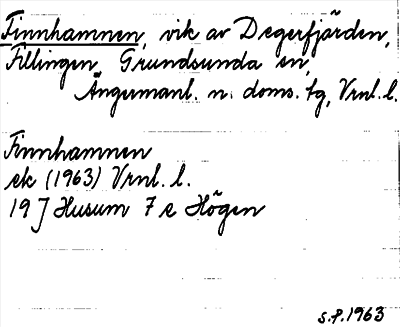 Finnhamnen, vik av Degerfjärden,
Fillingen, Grundsunda sn,
Ångermanl. n. doms. tg, Vrnl. l.
Finnhamnen
ek (1963) Vrnl. l.
19 J Husum 7 e Högen
S.P. 1963